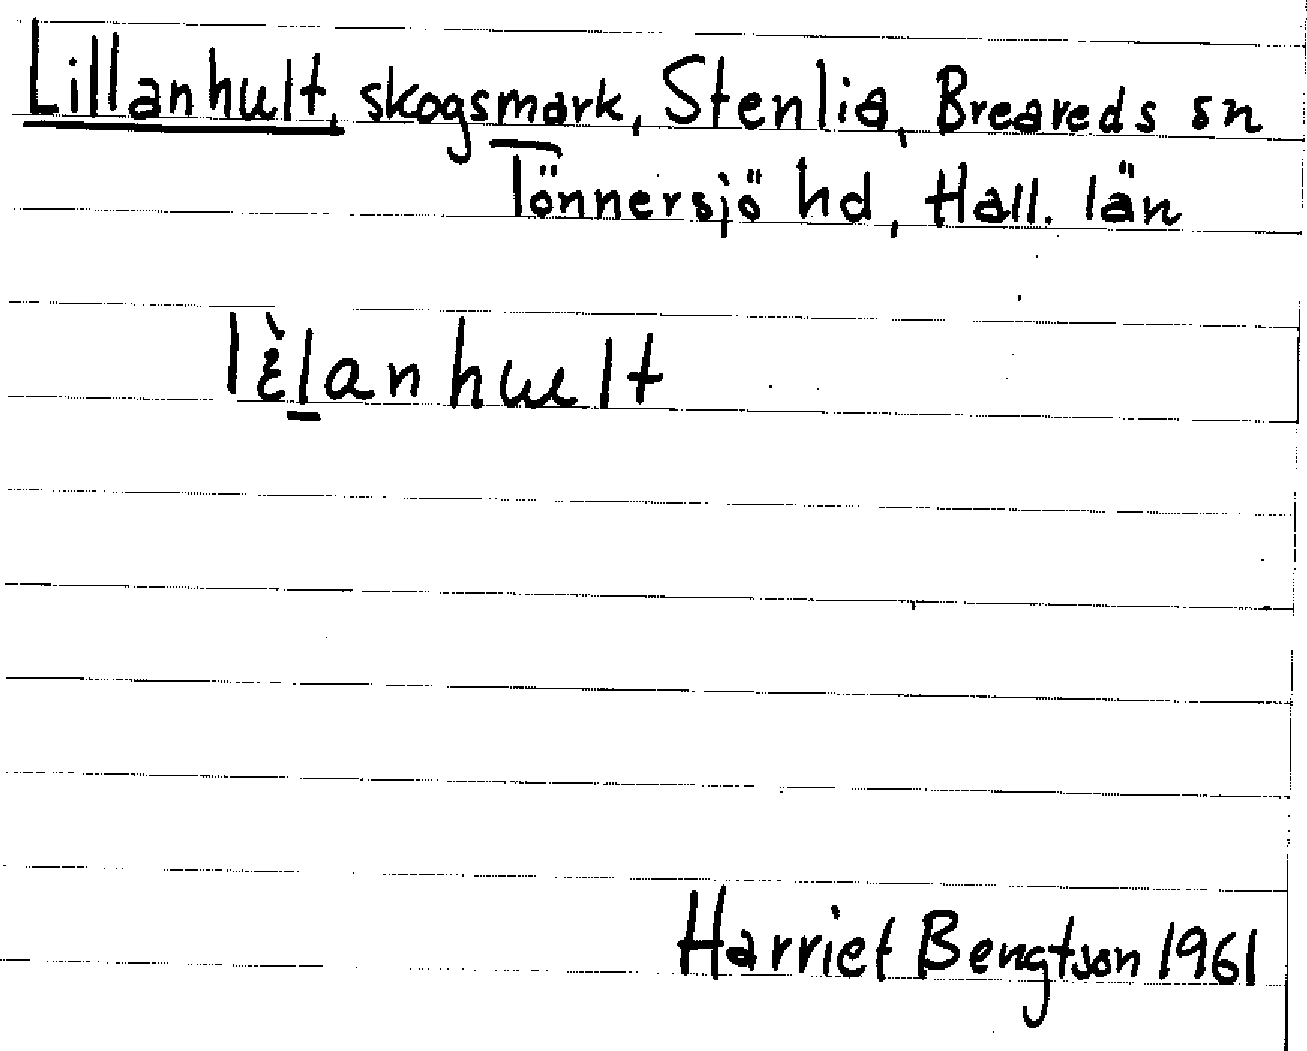 Lillanhult, skogsmark, Stenlia, Breareds sn
Tönnersjö hd, Hall. län
lɛ̀lanhult
Harriet Bengtson 1961